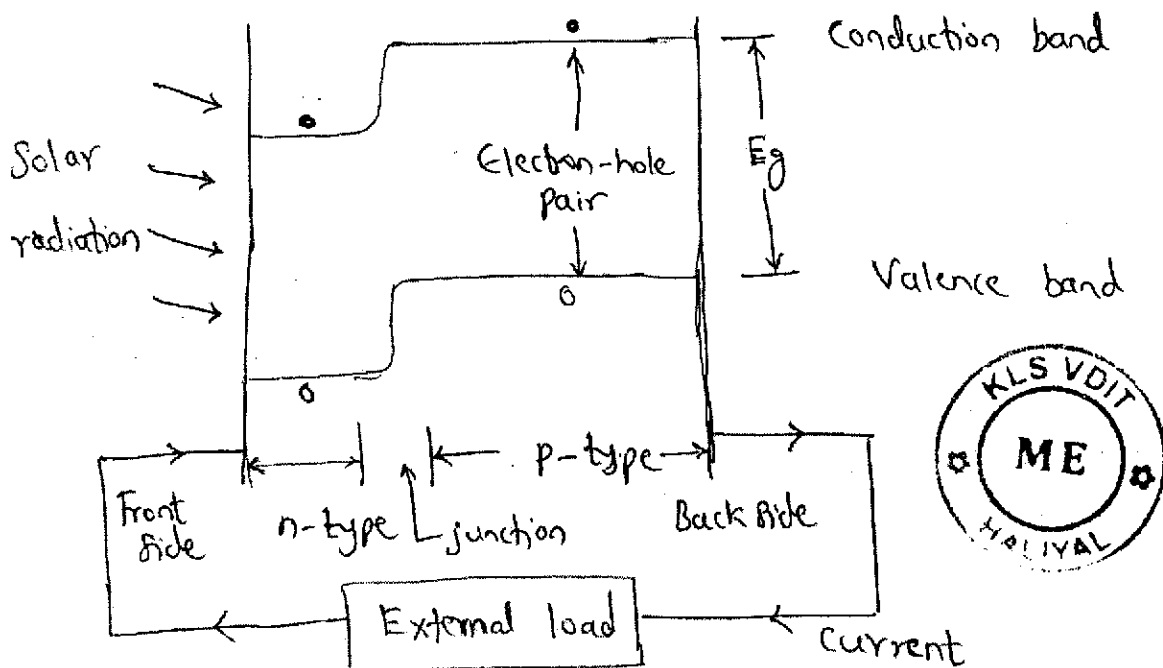 Conduction band
Solar
radiation
Electron-hole
pair
Eg
Valence band
KLS VDIT
ME
HALIYAL
Front
Side
n-type
junction
p-type
Back Side
External load
Current